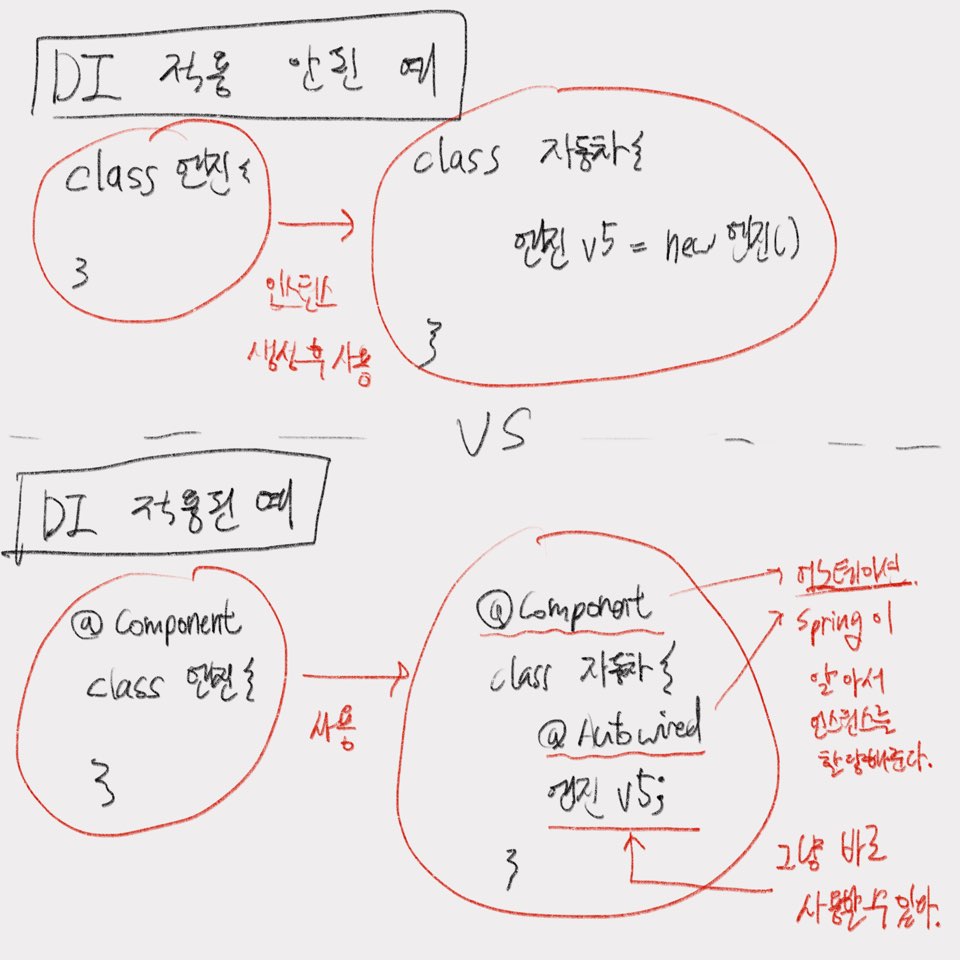 DI 적용 안된 예
class 엔진{
}
인스턴스
생성 후 사용
class 자동차{
엔진 v5 = new 엔진()
}
VS
DI 적용된 예
@Component
class 엔진{
}
사용
@Component
class 자동차{
@Autowired
엔진 v5;
}
어노테이션.
Spring이
알아서
인스턴스를
할당해준다.
그냥 바로
사용할 수 있다.